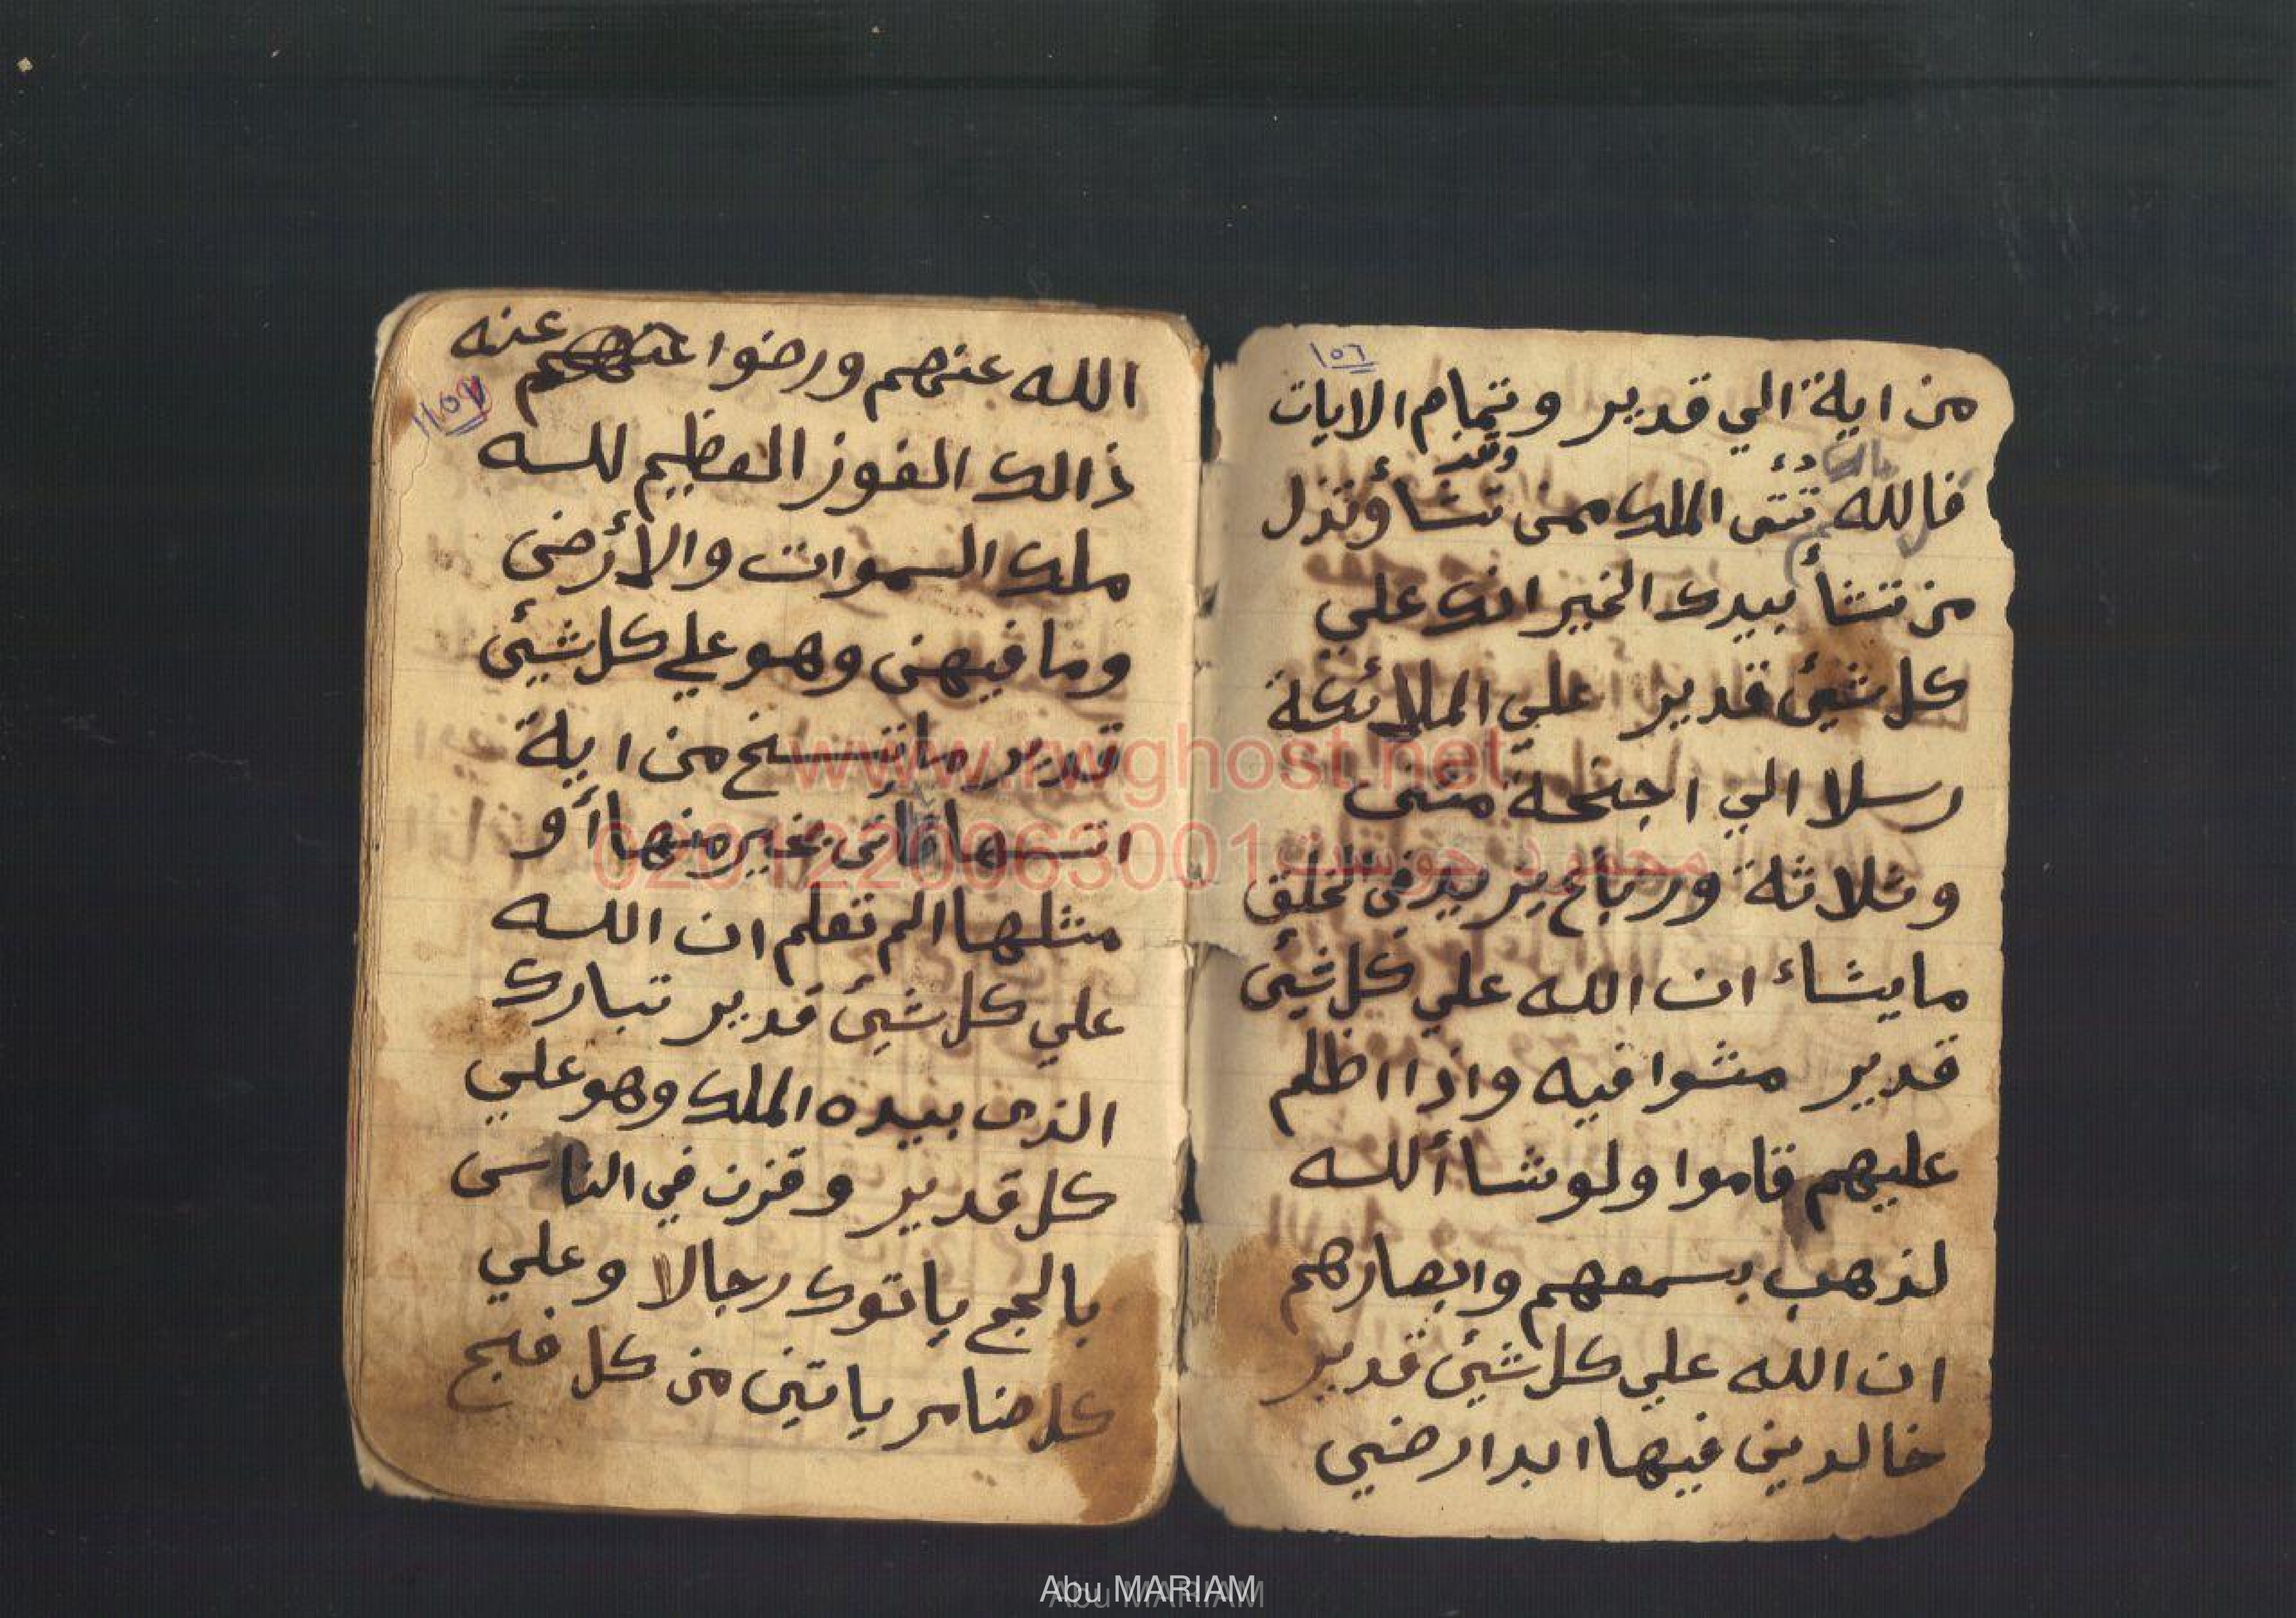 ١٥٦
من اية الي قدير وتمام الايات
وقد
فالله تتى الملك ممن تشأ وتذل
من تشأ بيدك الخير انك علي
كل شيئ قدير علي الملائكة
رسلا الي اجنحة مثنى
وثلاثة ورباع يزيد في لخلق
ما يشاء ان الله علي كل شيئ
قدير مشوا فيه واذا اظلم
عليهم قاموا ولو شا ألله
لذهب بسمعهم وابصارهم
ان الله علي كل شيئ قدير
خالدين فيها ابدا رضي
الله عنهم ورضوا عنه
ذالك الفوز العظيم لله
ملك السموات والأرض
وما فيهن وهو علي كل شيئ
قدير ما ننسخ من اية
اننسها نأتى بخير منها أو
مثلها الم تعلم ان الله
علي كل شيئ قدير تبارك
الذى بيده الملك وهو علي
كل قدير وقزن في الناس
بالحج ياتوك رجالا وعلي
كل ضامر ياتين من كل فج
www.rwghost.net
محمود جوست 0201220063001
Abu MARIAM